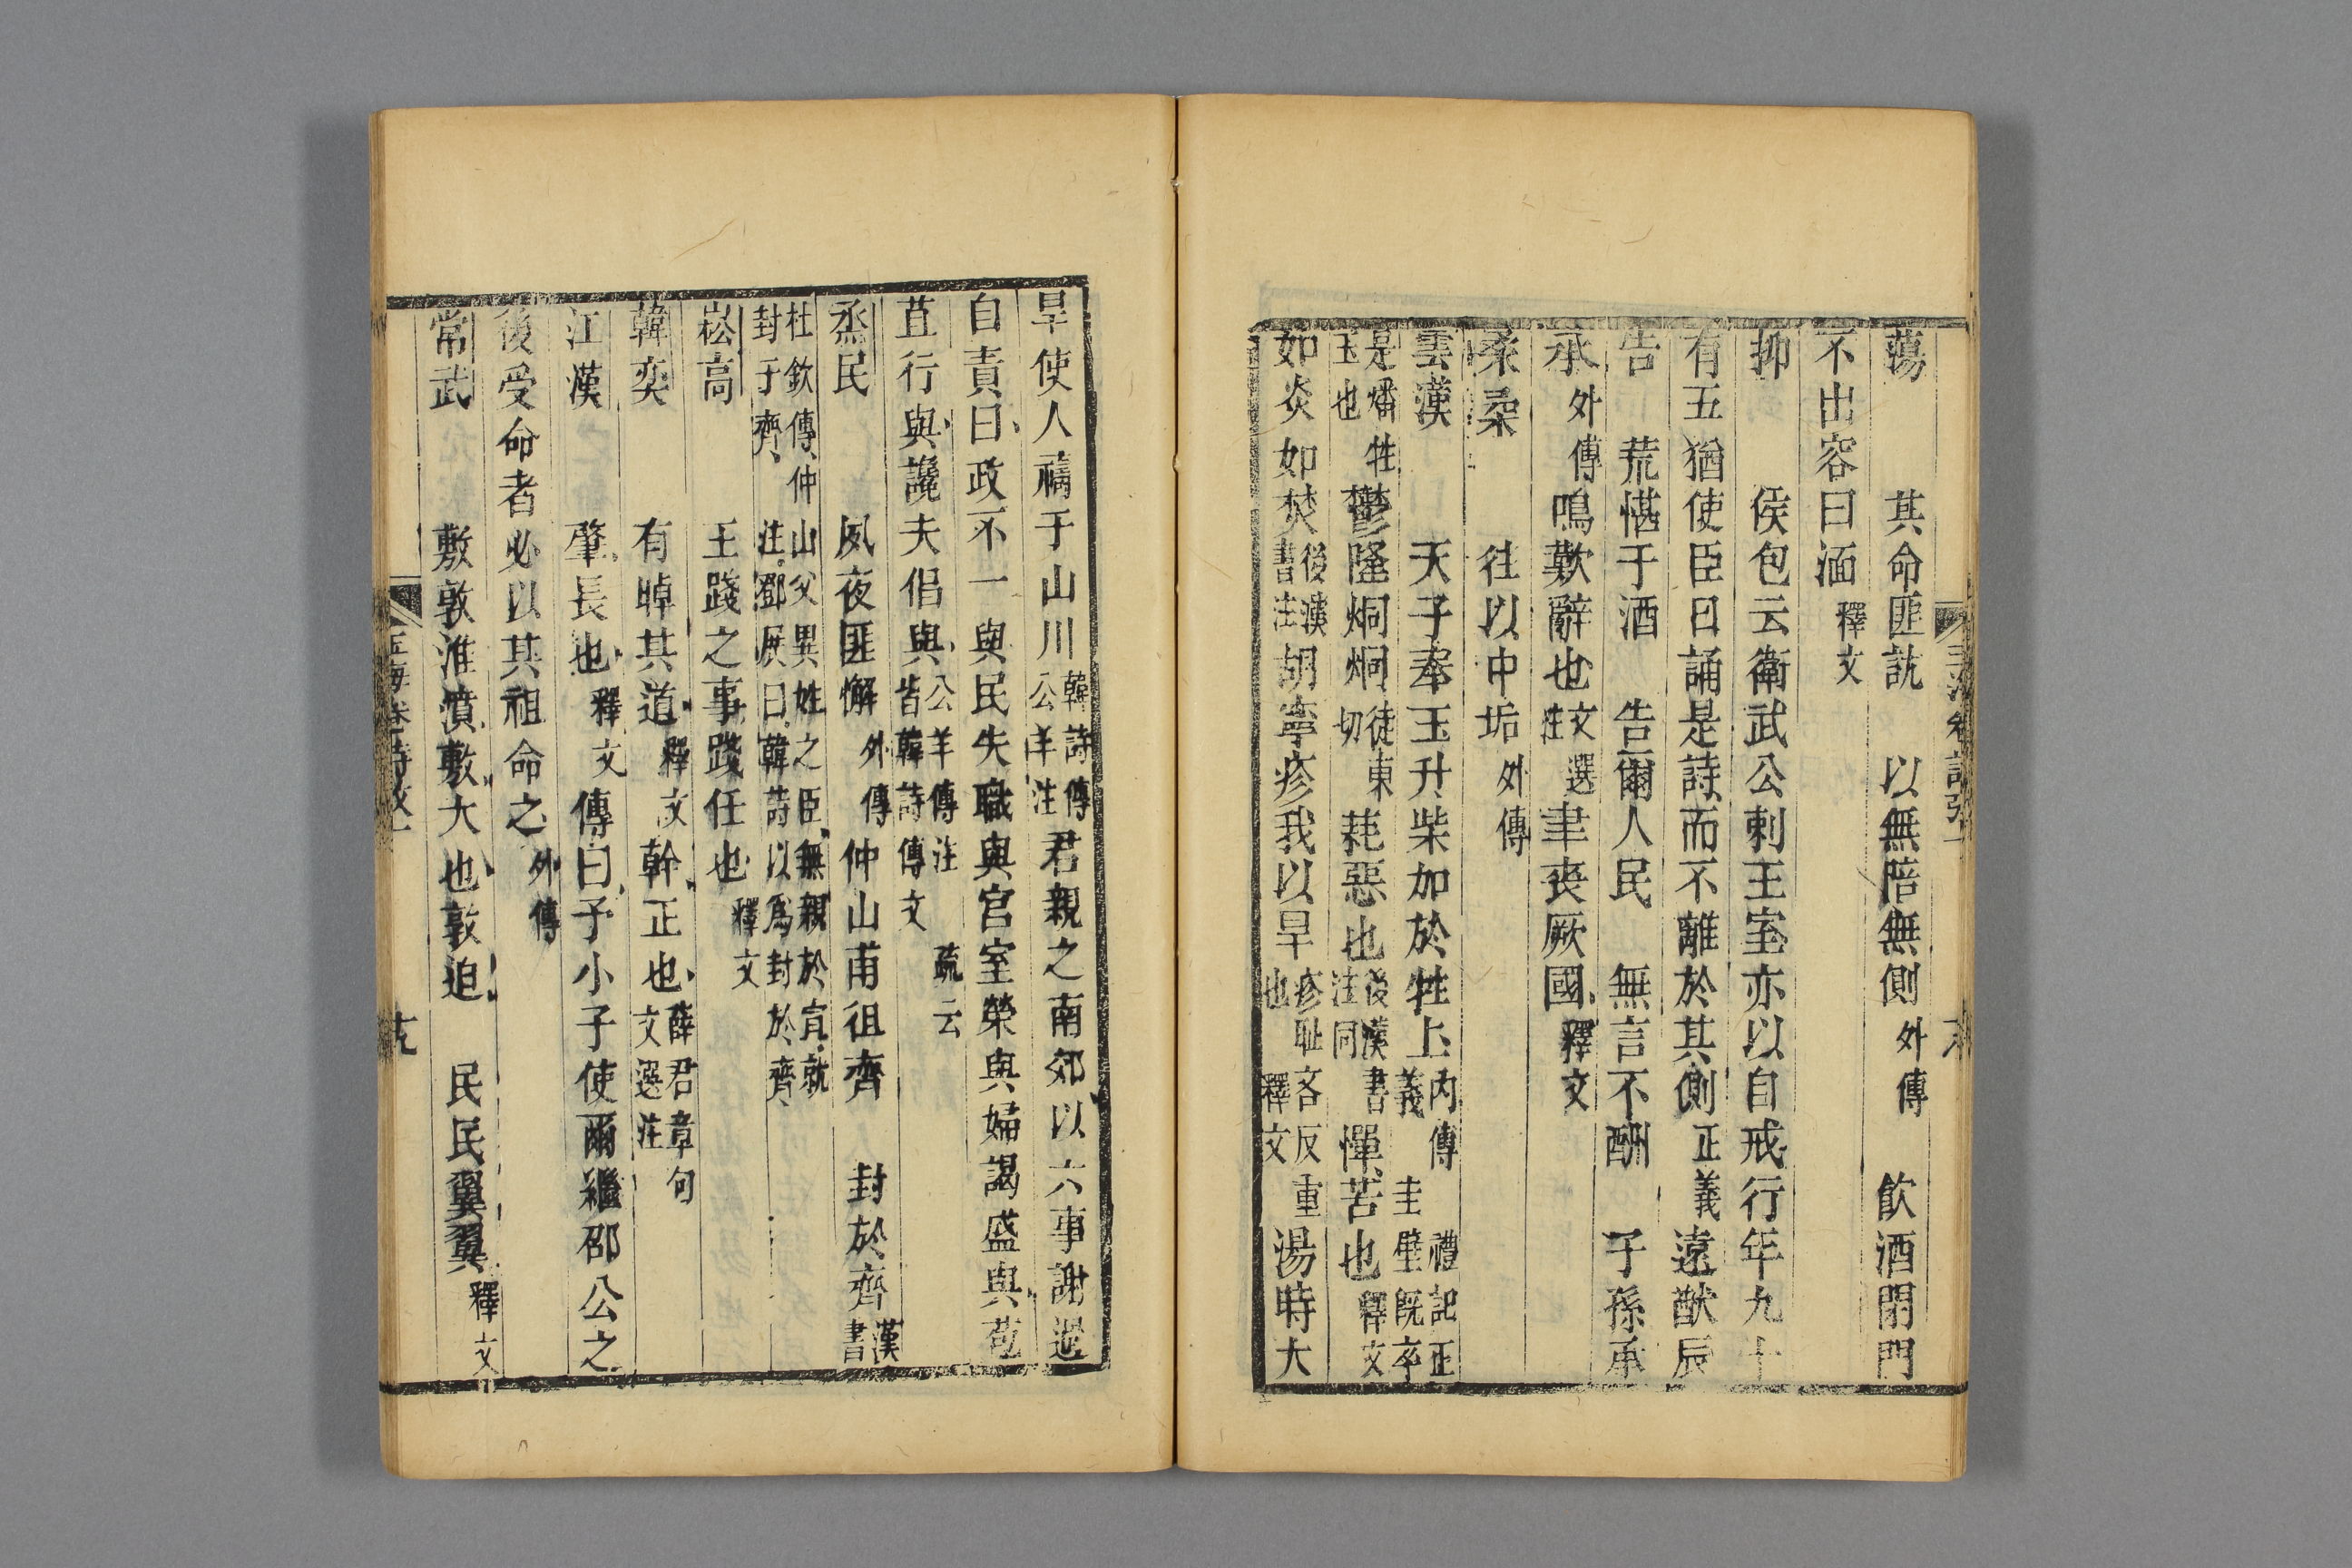 蕩　其命匪訦　以無陪無側外傳　飮酒閉門
不出容曰湎釋文
抑　侯包云衛武公刺王室亦以自戒行年九十
有五猶使臣日誦是詩而不離於其側正義遠猷辰
告　荒愖于酒　告爾人民　無言不酬　子孫承
承外傳鳴歎辭也文選注聿喪厥國釋文
桑柔　往以中垢外傳
雲漢　天子奉玉升柴加於牲上內傳義　圭璧旣卒禮記正
是燔牲玉也鬱隆烔烔徒東切耗惡也後漢書注同憚苦也釋文
如炎如焚後漢書注胡寧疹我以旱疹耻吝反重也釋文湯時大
旱使人禱于山川韓詩傳公羊注君親之南郊以六事謝過
自責曰政不一與民失職與宮室榮與婦謁盛與苞
苴行與讒夫倡與公羊傳注疏云皆韓詩傳文
烝民　夙夜匪懈外傳仲山甫徂齊　封於齊漢書
杜欽傳仲山父異姓之臣無親於宣就封于齊注鄧展曰韓詩以爲封於齊
崧高　王踐之事踐任也釋文
韓奕　有晫其道釋文幹正也薛君章句文選注
江漢　肇長也釋文傳曰予小子使爾繼邵公之
後受命者必以其祖命之外傳
常武　敷敦淮濆敷大也敦迫　民民翼翼釋文
玉海卷 詩攷一　十九